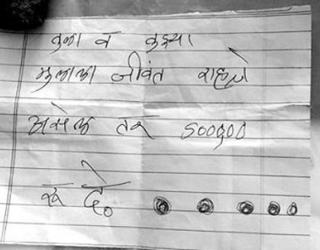 तुला व तुझ्या
मुलाला जीवंत राहचे
असेल तर 500000
रु दे०